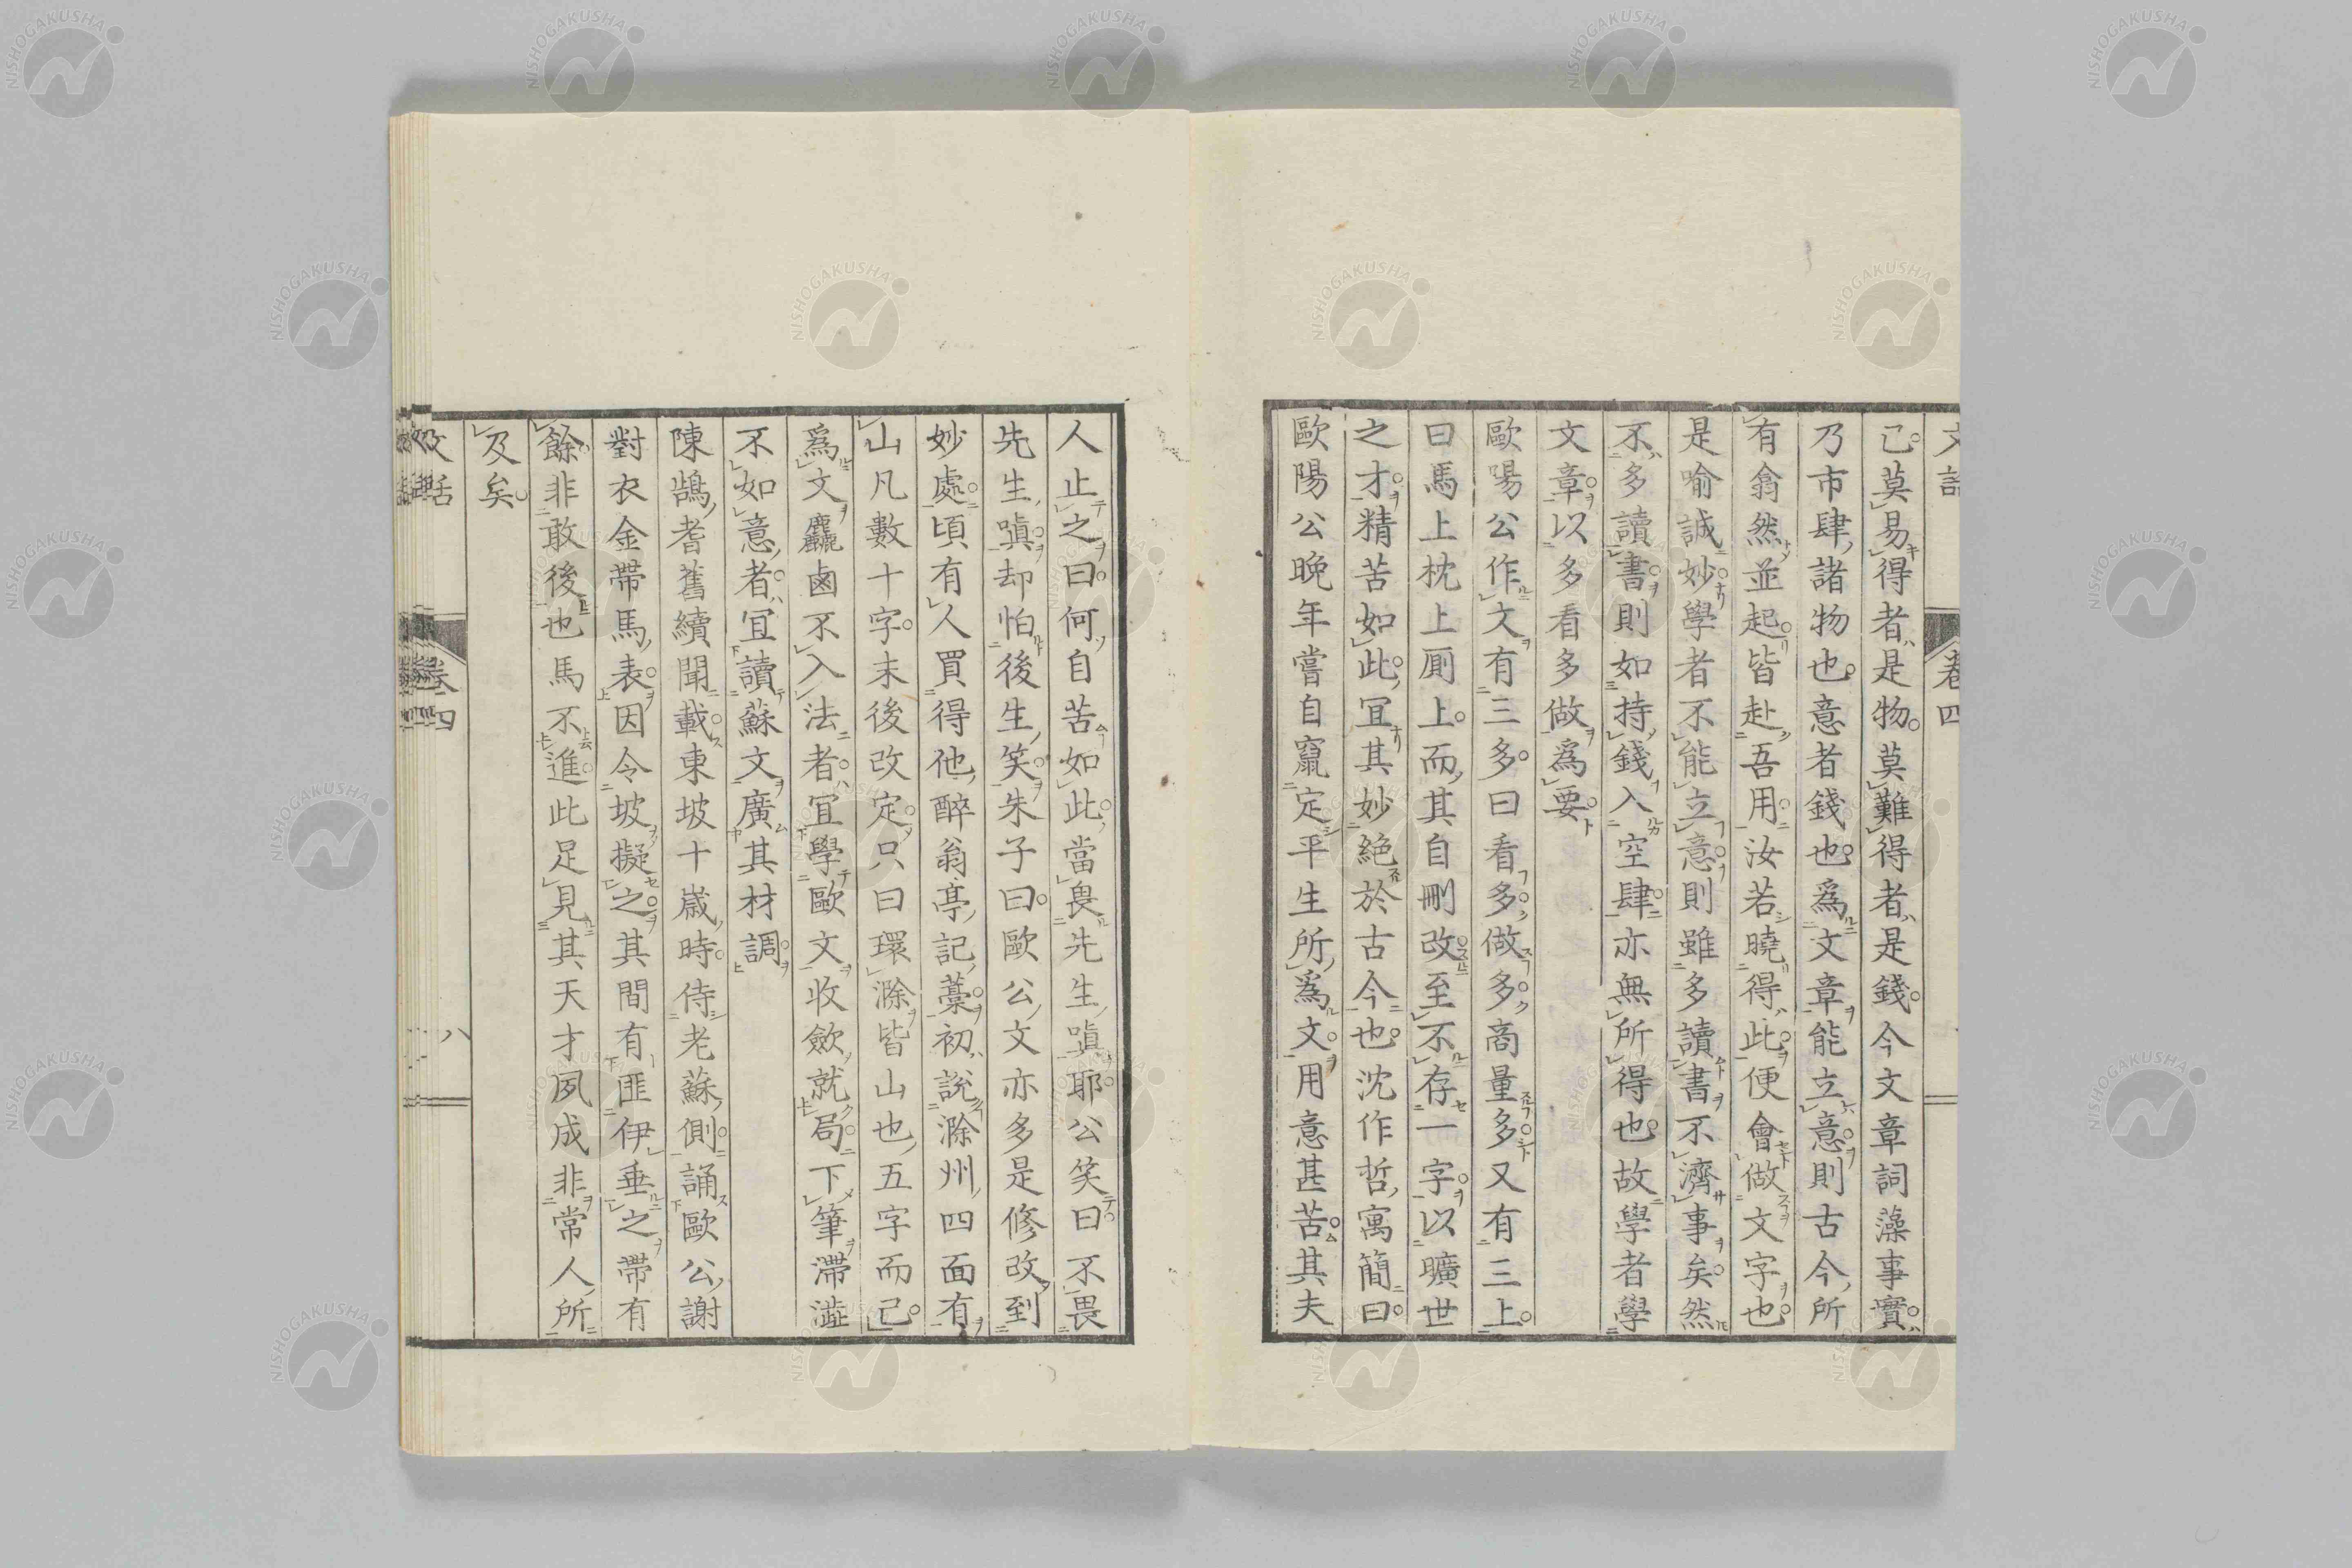 已莫易得者是物莫難得者是錢今文章詞藻事實
乃市肆諸物也意者錢也爲文章能立意則古今所
有翕然並起皆赴吾用汝若曉得此便會做文字也
是喻誠妙學者不能立意則雖多讀書不濟事矣然
不多讀書則如持錢入空肆亦無所得也故學者學
文章以多看多做爲要
歐陽公作文有三多曰看多做多商量多又有三上
曰馬上枕上厠上而其自刪改至不存一字以曠世
之才精苦如此宜其妙絕於古今也沈作哲寓簡曰
歐陽公晚年嘗自竄定平生所爲文用意甚苦其夫
人止之曰何自苦如此當畏先生嗔耶公笑曰不畏
先生嗔却怕後生笑朱子曰歐公文亦多是修改到
妙處頃有人買得他醉翁亭記藁初說滁州四面有
山凡數十字末後改定只曰環滁皆山也五字而已
爲文麤鹵不入法者宜學歐文收斂就局下筆滯澁
不如意者宜讀蘇文廣其材調
陳鵠耆舊續聞載東坡十歲時侍老蘇側誦歐公謝
對衣金帶馬表因令坡擬之其間有匪伊垂之帶有
餘非敢後也馬不進此足見其天才夙成非常人所
及矣
文話
卷四
八